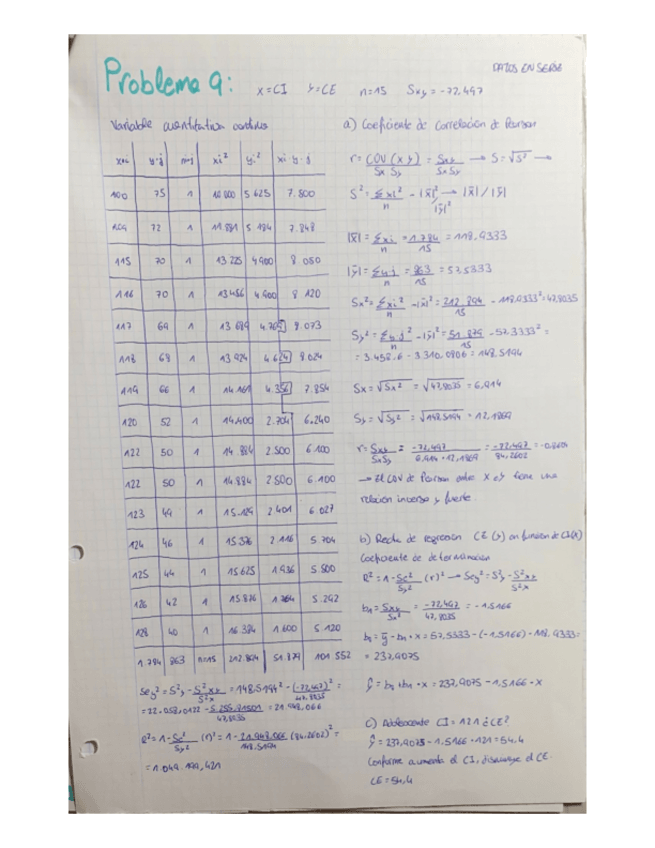 DATOS EN SERIE
Problema 9: x=CI y=CE n=15 Sxy=-72,497
Variable cuantitativa continua
xi y.j n.j xi² yi² xi y.j
100 75 1 10.000 5.625 7.800
72 1 11.881 5.184 7.848
115 70 1 13.225 4.900 8.050
116 70 1 13.456 4.900 8.120
117 69 1 13.689 8.073
118 68 1 13.924 4.624 8.024
119 66 1 14.161 4.356 7.854
120 52 1 14.400 2.704 6.240
122 50 1 14.884 2.500 6.100
122 50 1 14.884 2.500 6.100
123 49 1 15.129 2.401 6.027
124 46 1 15.376 2.116 5.704
125 44 1 15.625 1.936 5.500
126 42 1 15.876 1.764 5.292
128 40 1 16.384 1.600 5.120
1.784 863 n=15 212.894 51.879 101.552
Sey² = S²y - S²xy/S²x = 148,5194² - (-72,497)²/47,8035 =
= 22.058,0122 - 5.255,81501/47,8035 = 21.948,066
R² = 1 - Se²/Sy² (r)² = 1 - 21.948,066/148,5194 (84,2602)² =
= 1.049.199,421
a) Coeficiente de Correlación de Pearson
r = COV (x y)/Sx Sy = Sxy/Sx Sy → S = √S² →
S² = Σxi²/n - |x̄|² → |x̄| / |ȳ|
|ȳ|²
|x̄| = Σxi/n = 1.784/15 = 118,9333
|ȳ| = Σy.j/n = 863/15 = 57,5333
Sx² = Σxi²/n - |x̄|² = 212.894/15 - 118,9333² = 47,8035
Sy² = Σy.j²/n - |ȳ|² = 51.879/15 - 57,3333² =
= 3.458,6 - 3.310,0806 = 148,5194
Sx = √Sx² = √47,8035 = 6,914
Sy = √Sy² = √148,5194 = 12,1869
r = Sxy/SxSy = -72,497/6,914·12,1869 = -72,497/84,2602 = -0,8604
→ El COV de Pearson entre x e y tiene una
relación inversa y fuerte.
b) Recta de regresión CE (y) en función de CI (x)
Coeficiente de determinación
R² = 1 - Se²/Sy² (r)² → Sey² = S²y - S²xy/S²x
b₁ = Sxy/S²x = -72,497/47,8035 = -1,5166
b₁ = ȳ - b₁ · x = 57,5333 - (-1,5166) · 118,9333 =
= 237,9075
ŷ = b₀ + b₁ · x = 237,9075 - 1,5166 · x
c) Adolescente CI = 121 ¿CE?
ŷ = 237,9075 - 1,5166 · 121 = 54,4
Conforme aumenta el CI, disminuye el CE.
CE = 54,4